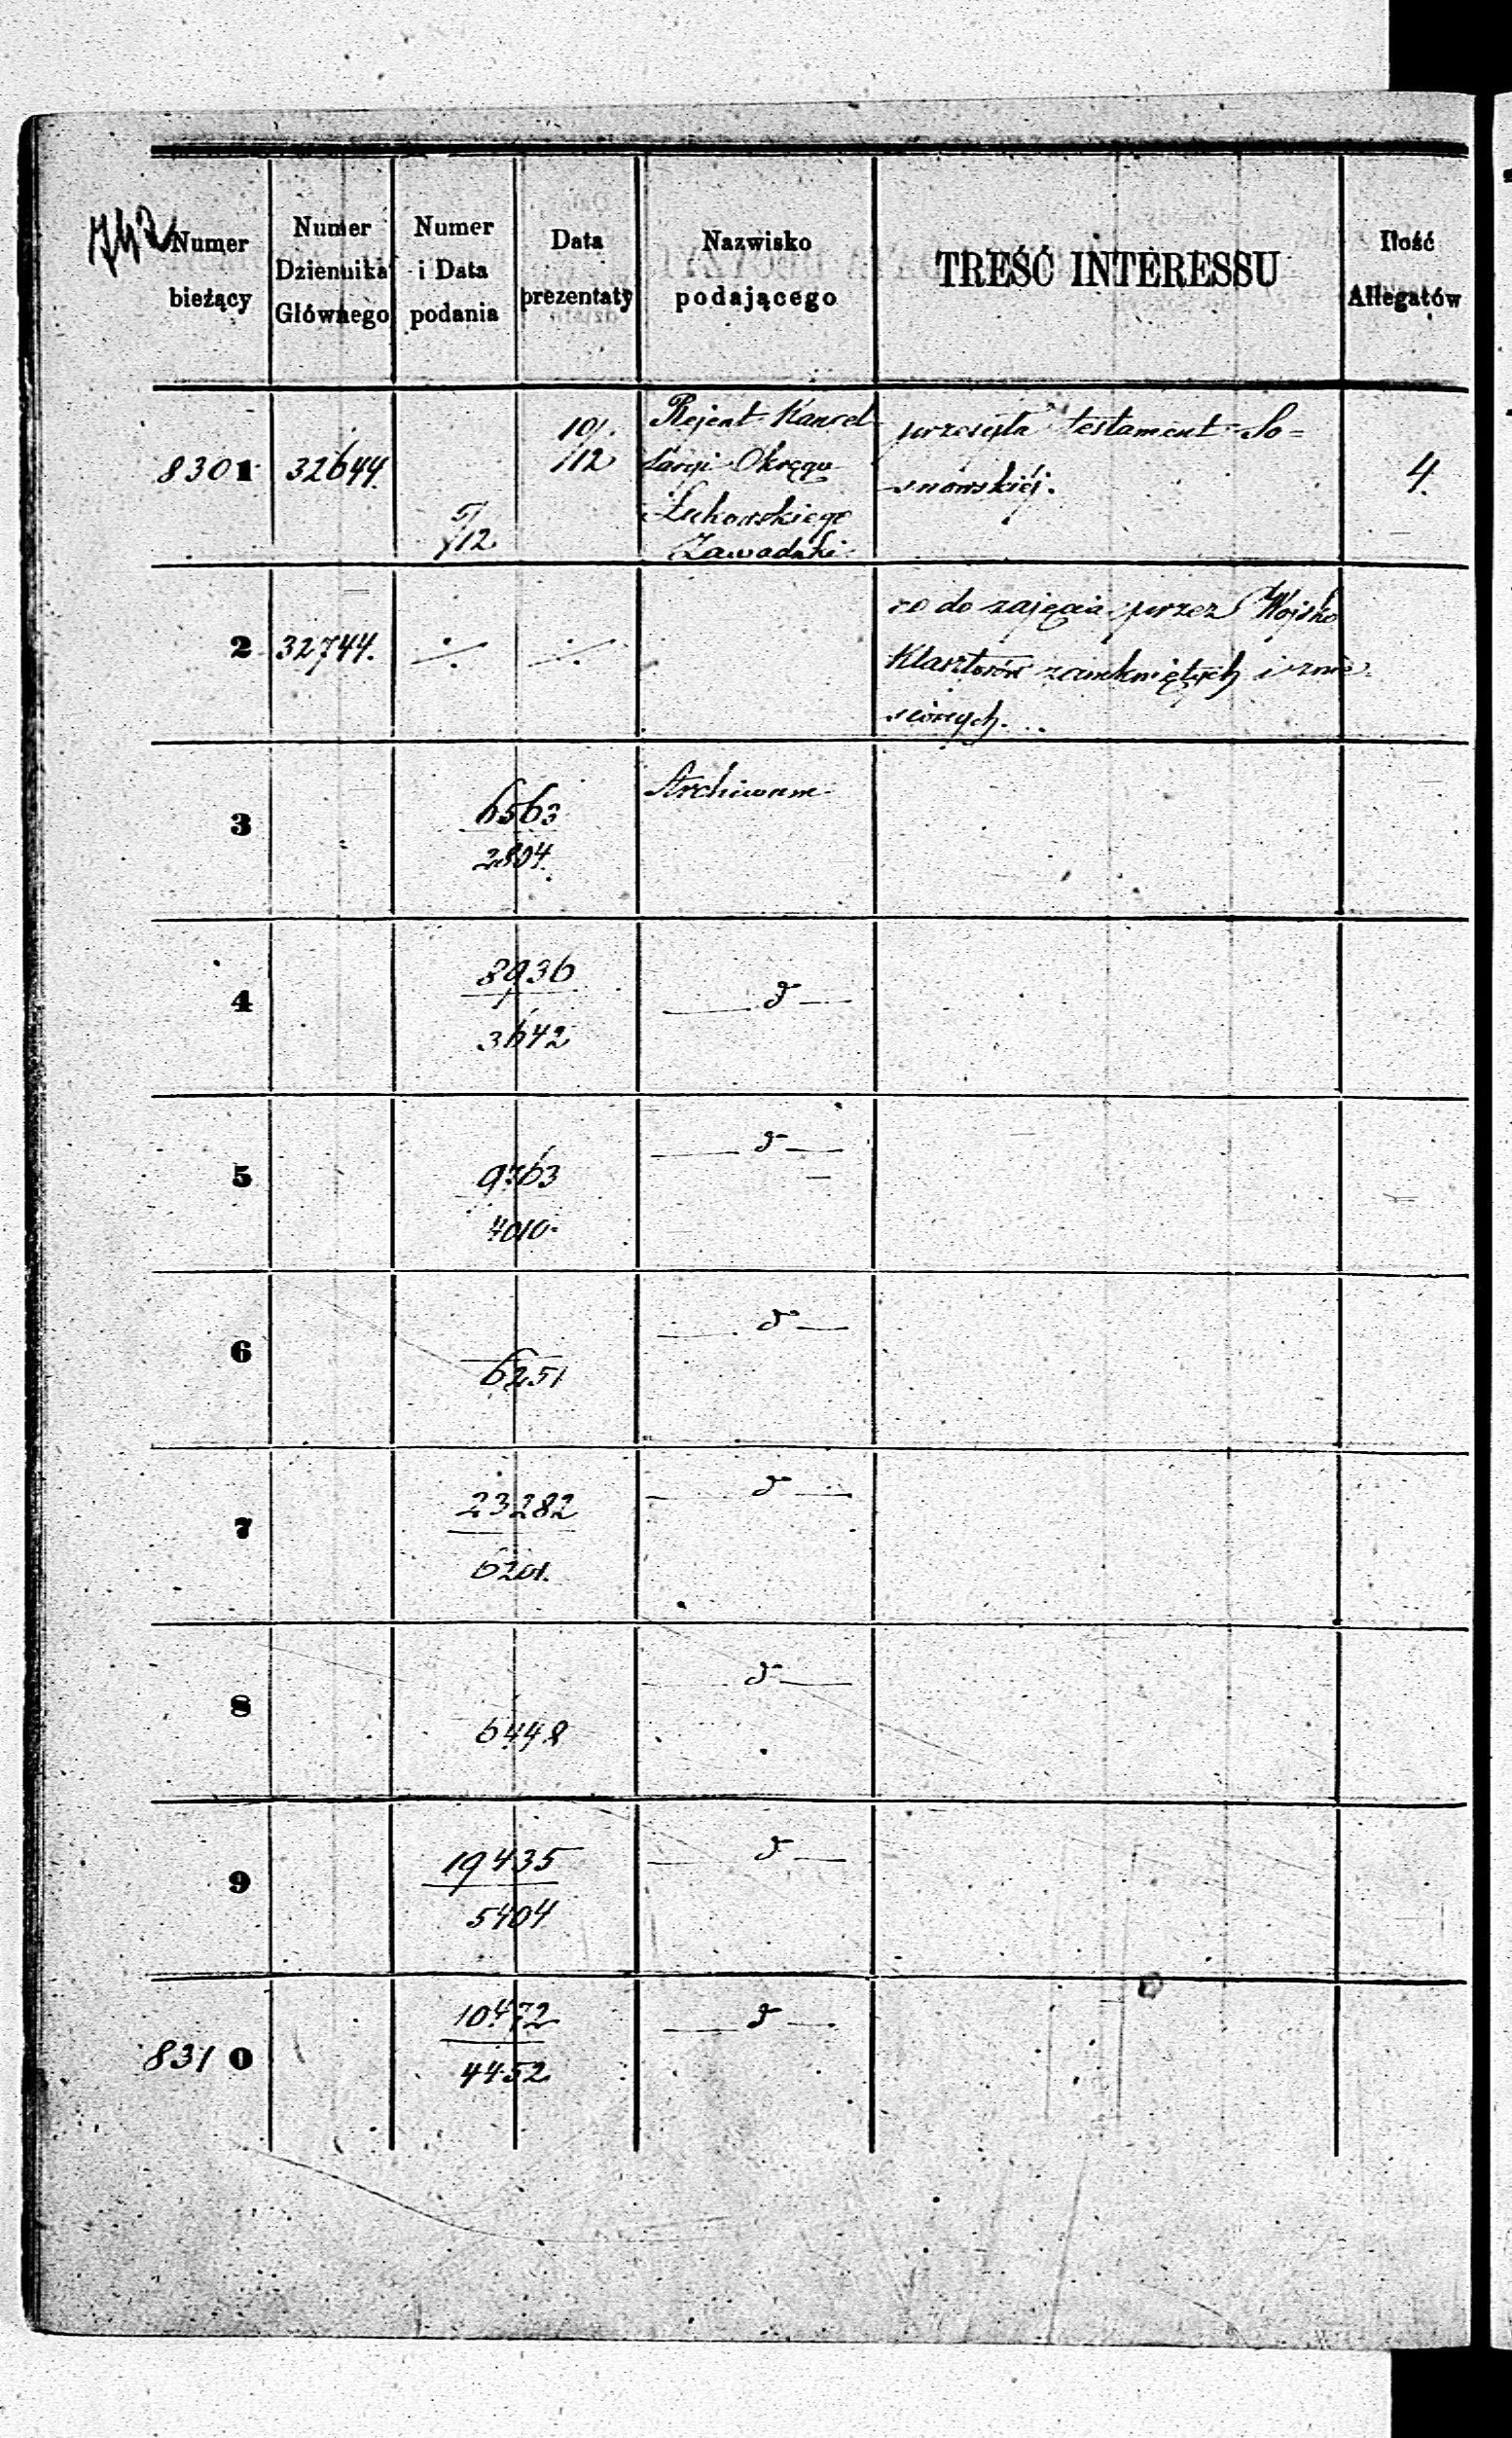 742
Numer bieżący
Numer Dziennika Głównego
Numer i Data podania
Data prezentaty
Nazwisko podającego
TREŚĆ INTERESSU
Ilość Allegatów
8301
32644.
5/12
10/12
Rejent Kancel
laryi Okręgu
Łukowskiego
Zawadzki
przesyła testament So=
snowskiéj.
4.
2
32744.
co do zajęcia przez Wojsko
Klasztorów zamkniętych i znie
sionych.
3
6563
2804.
Archiwum
4
8936
3642
d
5
9763
4010.
d
6
6251
d
7
23282
6201.
d
8
6448
d
9
19435
5404
d
8310
10472
4452
d